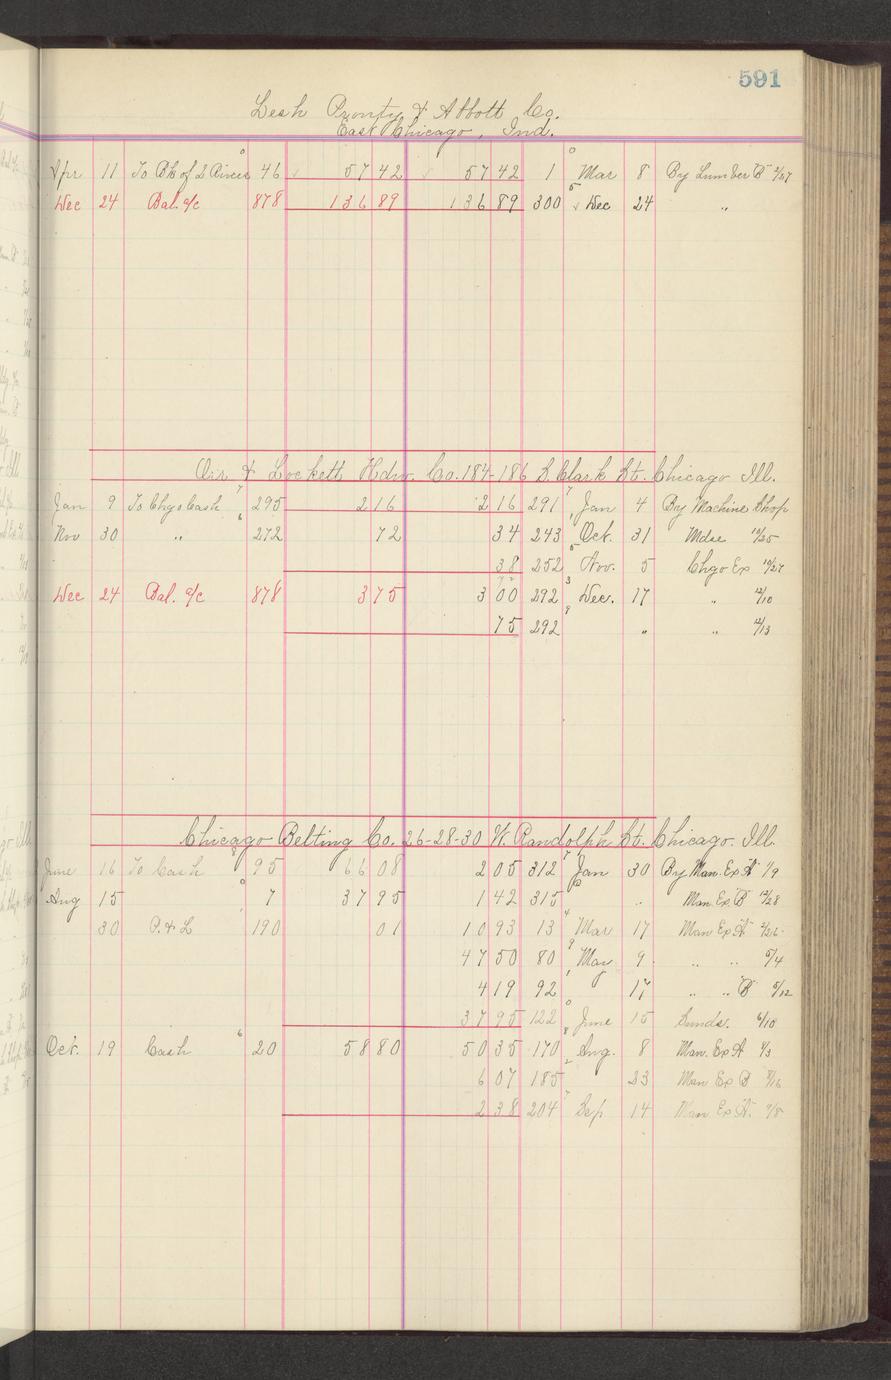 591
Lesh Prouty & Abbott Co.
East Chicago, Ind.
Apr 11 To Bk of 2 Rivers 46 57 42 57 42 1 Mar 8 By Lumber B 2/27
Dec 24 Bal. a/c 878 136 89 136 89 300 Dec 24 "
Orr & Lockett Hdw. Co. 184-186 S. Clark St. Chicago Ill.
Jan 9 To Chgo Cash 295 2 16 2 16 291 Jan 4 By Machine Shop
Nov 30 " 272 72 34 243 Oct. 31 Mdse 10/25
38 252 Nov. 5 Chgo Ex 10/27
Dec 24 Bal. a/c 878 3 75 3 00 292 Dec. 17 " 12/10
75 292 " " 12/13
Chicago Belting Co. 26-28-30 W. Randolph St. Chicago. Ill.
June 16 To Cash 95 66 08 2 05 312 Jan 30 By Man. Ex A 1/9
Aug 15 7 37 95 1 42 315 " Man. Ex B 12/28
30 P. & L 190 01 10 93 13 Mar 17 Man Ex A 2/26
47 50 80 May 9 " " 5/4
4 19 92 17 " " B 5/12
37 95 122 June 15 Sunds. 6/10
Oct. 19 Cash 20 58 80 50 35 170 Aug. 8 Man. Ex A
6 07 185 23 Man Ex B 8/16
2 38 204 Sep 14 Man Ex A. 9/8